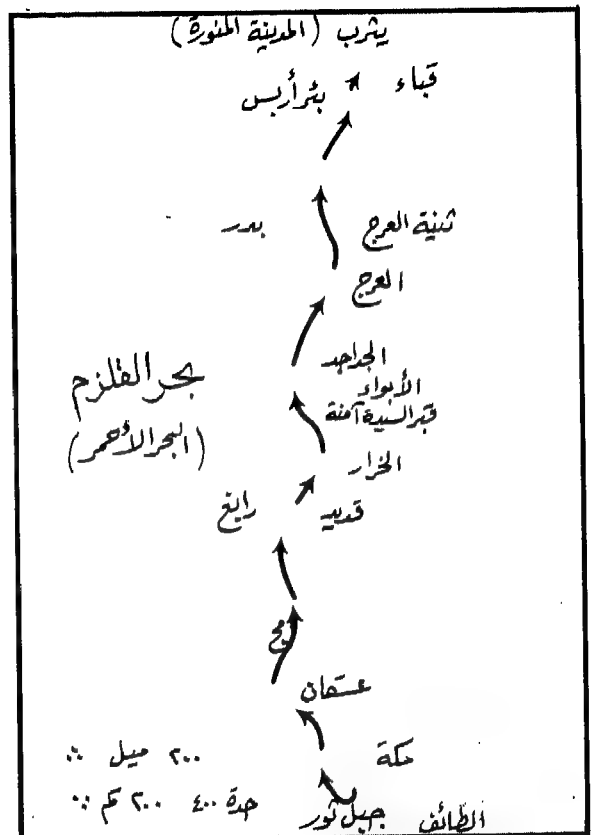 يثرب (المدينة المنورة)
قباء
بئر أريس
ثنية العرج
بدر
العرج
الجداجد
الأبواء
قبر السيدة آمنة
بحر القلزم
(البحر الأحمر)
الخرار
قديد
رابغ
عسفان
مكة
٢٠٠ ميل
الطائف
جبل ثور
جدة ٤٠٠ ٢٠٠ كم